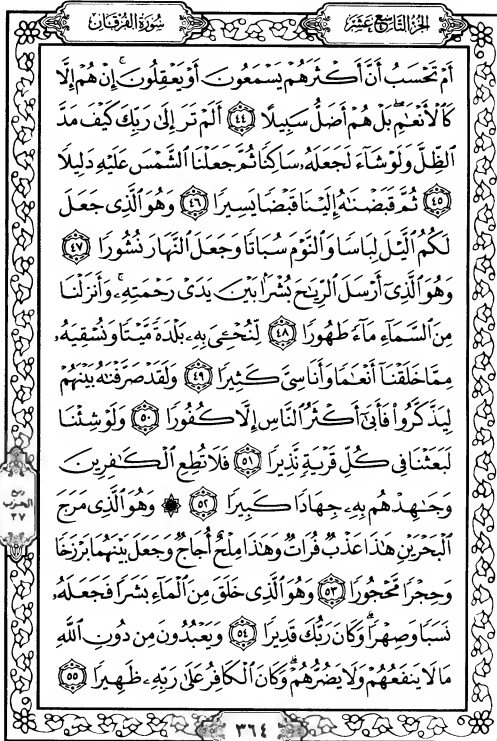 سُورَةُ الْفُرْقَانِ
الجُزْءُ التَّاسِعَ عَشَرَ
أَمْ تَحْسَبُ أَنَّ أَكْثَرَهُمْ يَسْمَعُونَ أَوْ يَعْقِلُونَ ۚ إِنْ هُمْ إِلَّا
كَالْأَنْعَٰمِ ۖ بَلْ هُمْ أَضَلُّ سَبِيلًا ٤٤ أَلَمْ تَرَ إِلَىٰ رَبِّكَ كَيْفَ مَدَّ
الظِّلَّ وَلَوْ شَآءَ لَجَعَلَهُۥ سَاكِنًا ثُمَّ جَعَلْنَا الشَّمْسَ عَلَيْهِ دَلِيلًا
٤٥ ثُمَّ قَبَضْنَٰهُ إِلَيْنَا قَبْضًا يَسِيرًا ٤٦ وَهُوَ الَّذِى جَعَلَ
لَكُمُ الَّيْلَ لِبَاسًا وَالنَّوْمَ سُبَاتًا وَجَعَلَ النَّهَارَ نُشُورًا ٤٧
وَهُوَ الَّذِىٓ أَرْسَلَ الرِّيَٰحَ بُشْرًۢا بَيْنَ يَدَىْ رَحْمَتِهِۦ ۚ وَأَنزَلْنَا
مِنَ السَّمَآءِ مَآءً طَهُورًا ٤٨ لِّنُحْـِۧىَ بِهِۦ بَلْدَةً مَّيْتًا وَنُسْقِيَهُۥ
مِمَّا خَلَقْنَآ أَنْعَٰمًا وَأَنَاسِىَّ كَثِيرًا ٤٩ وَلَقَدْ صَرَّفْنَٰهُ بَيْنَهُمْ
لِيَذَّكَّرُوا۟ فَأَبَىٰٓ أَكْثَرُ النَّاسِ إِلَّا كُفُورًا ٥٠ وَلَوْ شِئْنَا
لَبَعَثْنَا فِى كُلِّ قَرْيَةٍ نَّذِيرًا ٥١ فَلَا تُطِعِ الْكَٰفِرِينَ
وَجَٰهِدْهُم بِهِۦ جِهَادًا كَبِيرًا ٥٢ ۞ وَهُوَ الَّذِى مَرَجَ
الْبَحْرَيْنِ هَٰذَا عَذْبٌ فُرَاتٌ وَهَٰذَا مِلْحٌ أُجَاجٌ وَجَعَلَ بَيْنَهُمَا بَرْزَخًا
وَحِجْرًا مَّحْجُورًا ٥٣ وَهُوَ الَّذِى خَلَقَ مِنَ الْمَآءِ بَشَرًا فَجَعَلَهُۥ
نَسَبًا وَصِهْرًا ۗ وَكَانَ رَبُّكَ قَدِيرًا ٥٤ وَيَعْبُدُونَ مِن دُونِ اللَّهِ
مَا لَا يَنفَعُهُمْ وَلَا يَضُرُّهُمْ ۗ وَكَانَ الْكَافِرُ عَلَىٰ رَبِّهِۦ ظَهِيرًا ٥٥
ربع
الحزب
٣٧
٣٦٤